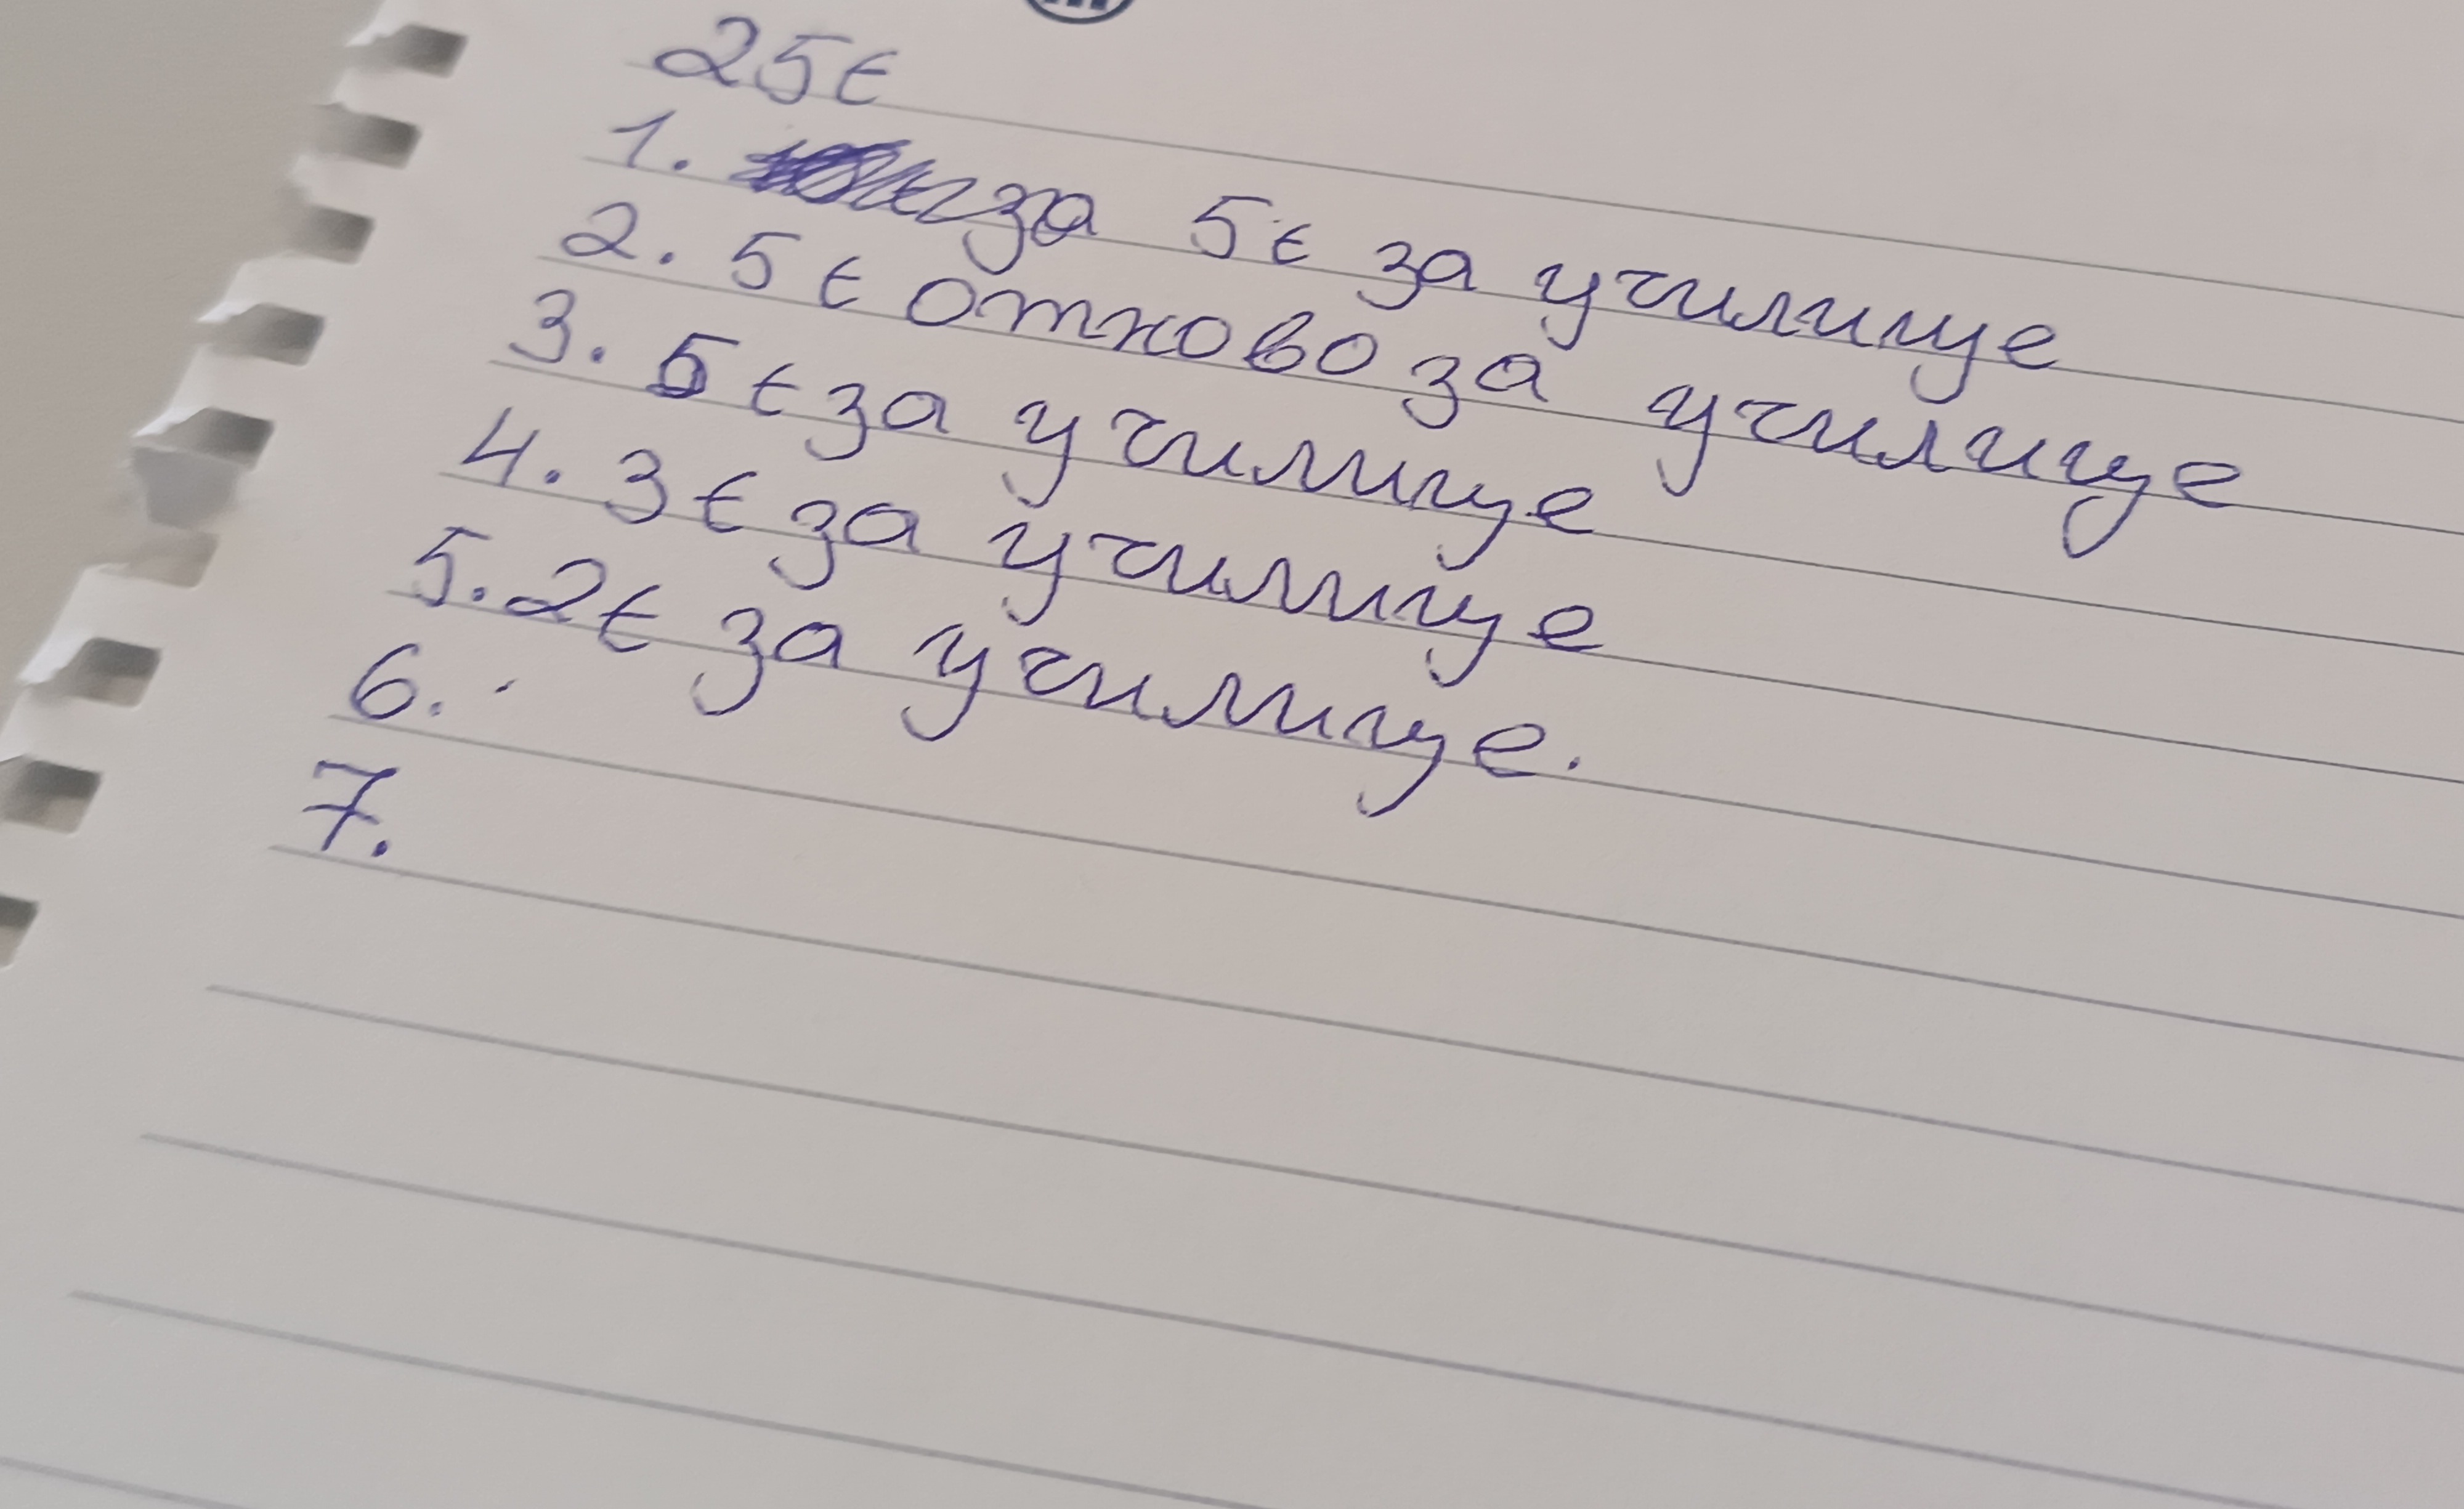 25€
1. за 5€ за училище
2. 5€ отново за училище
3. 5€ за училище
4. 3€ за училище
5. 2€ за училище.
6.
7.